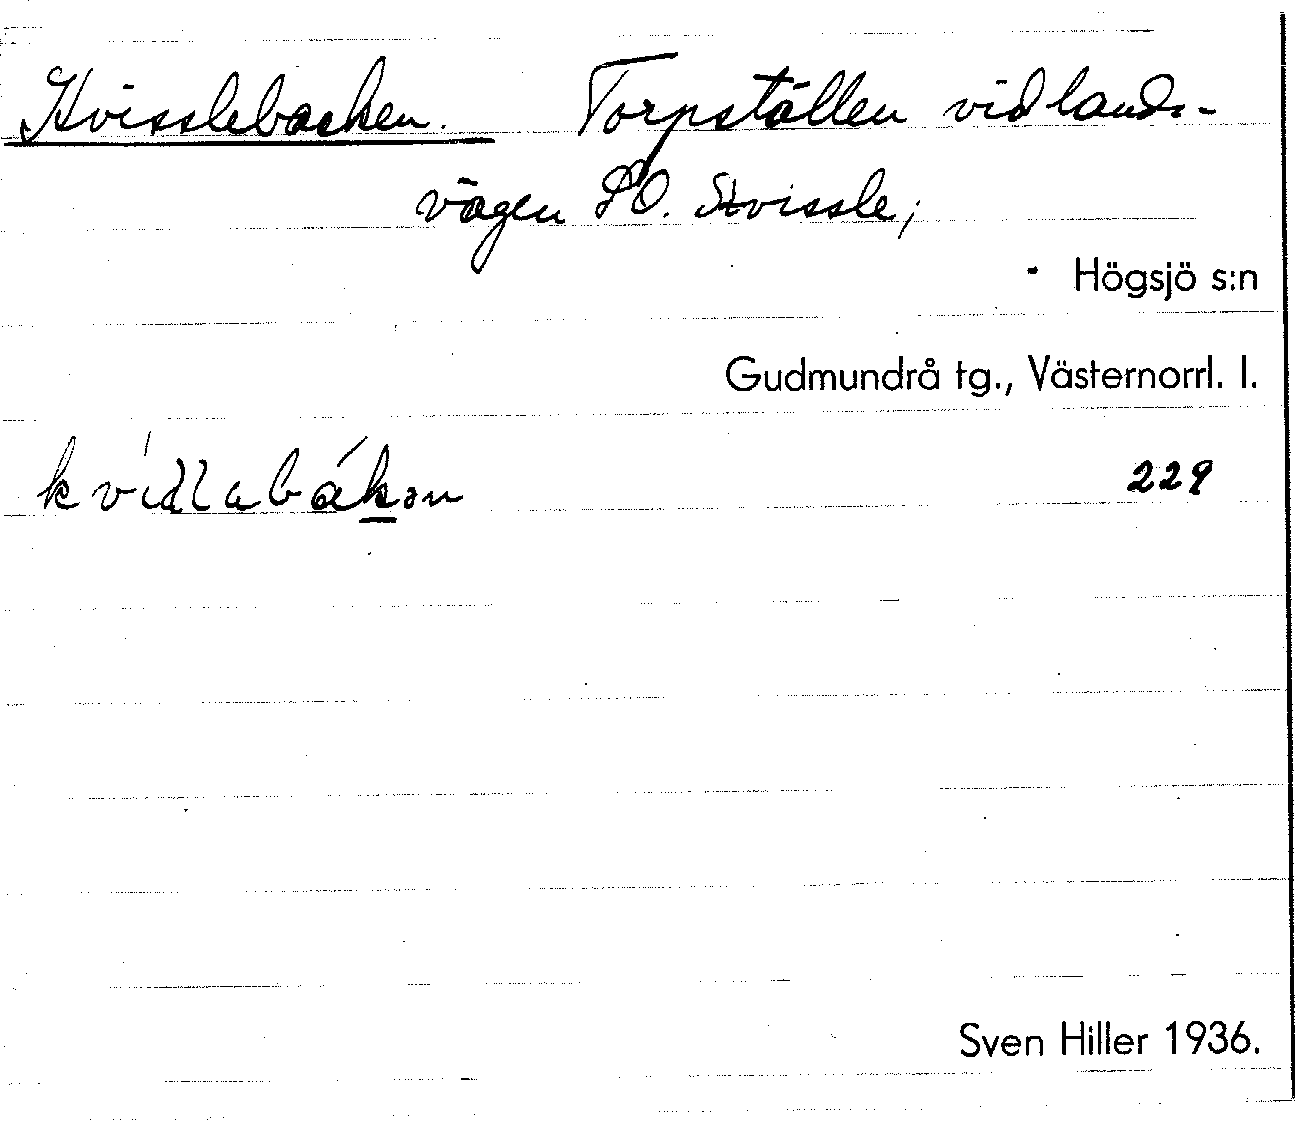 Hvisslebacken. Torpställen vid lands-
vägen SO. Hvissle;
Högsjö s:n
Gudmundrå tg., Västernorrl. l.
229
Sven Hiller 1936.